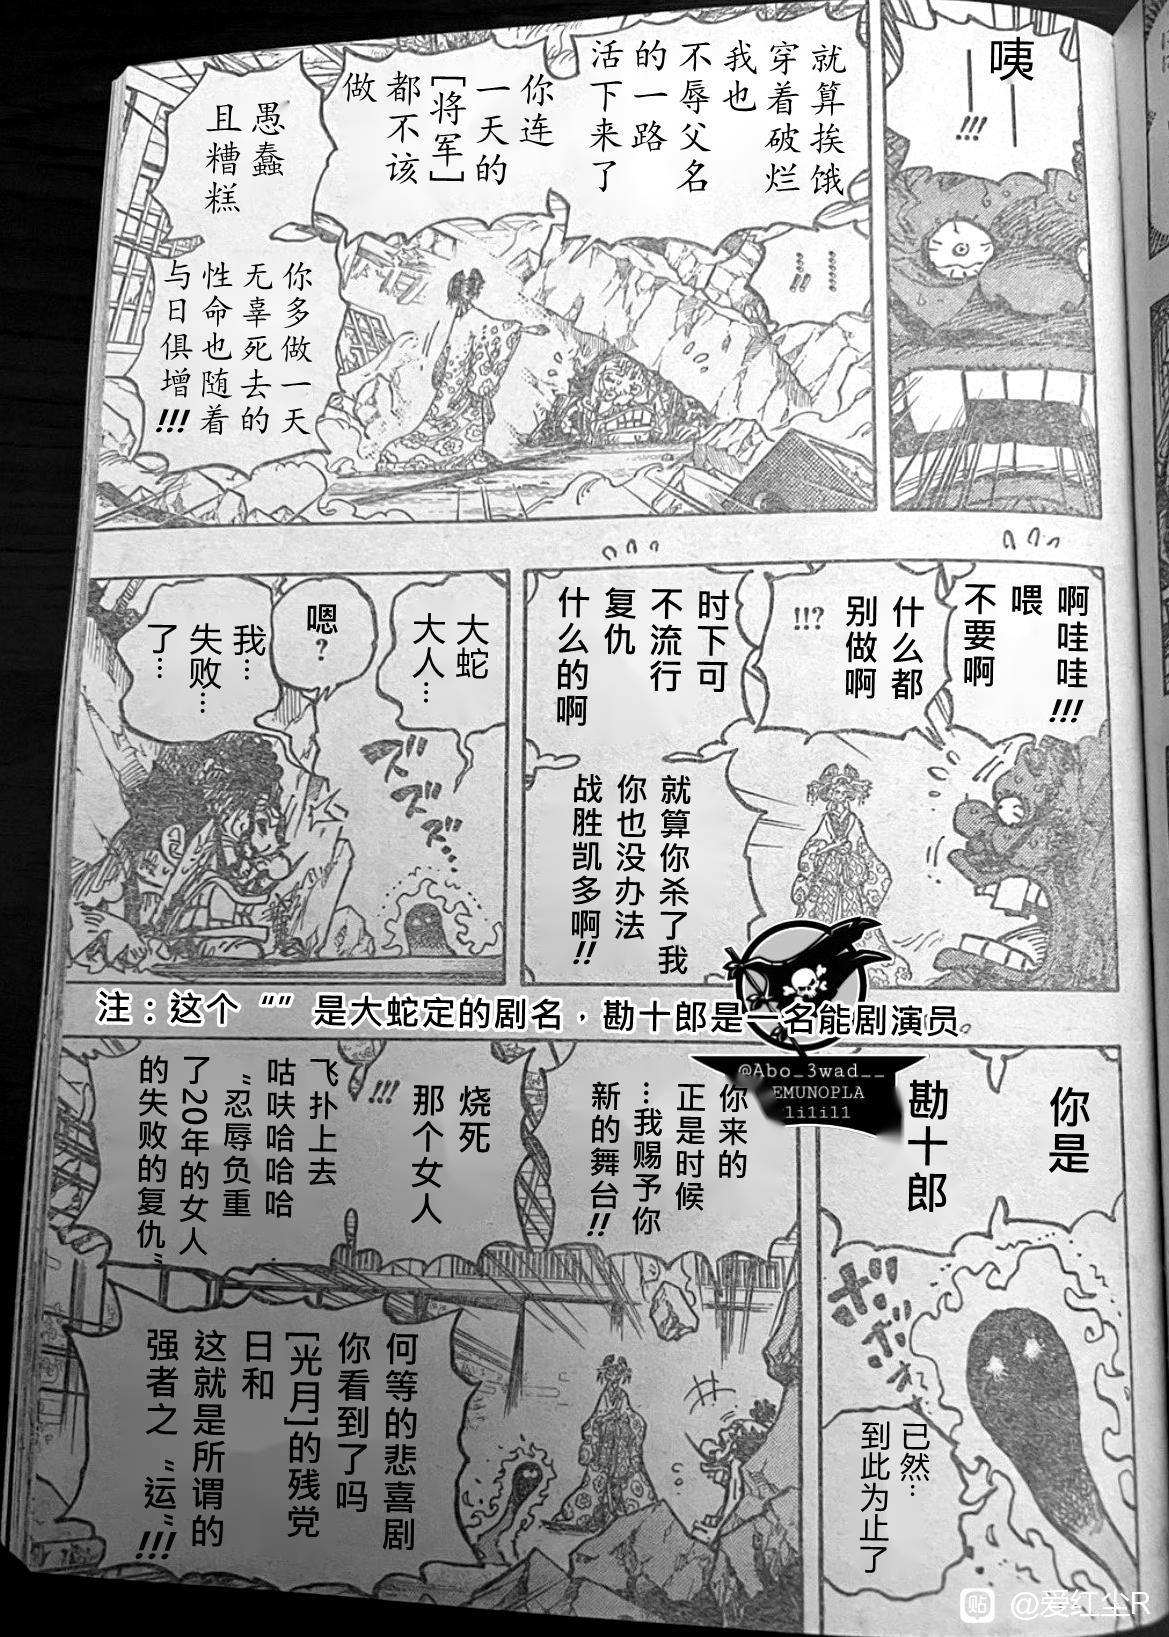 咦——!!!
就算挨饿
穿着破烂
我也
不辱父名
的一路
活下来了
你连
一天的
[将军]
都不该
做
愚蠢
且糟糕
你多做一天
无辜死去的
性命也随着
与日俱增!!!
啊哇哇!!!
喂
不要啊
什么都
别做啊
!!?
时下可
不流行
复仇
什么的啊
就算你杀了我
你也没办法
战胜凯多啊!!
大蛇
大人…
嗯?
我…
失败…
了…
ズズ
ズズ…
注：这个“”是大蛇定的剧名，勘十郎是一名能剧演员
@Abo_3wad__
EMUNOPLA
li1il1
你是
勘十郎
ボボ
已然…
到此为止了
你来的
正是时候
…我赐予你
新的舞台!!
烧死
那个女人
!!!
飞扑上去
咕呋哈哈哈
“忍辱负重
了20年的女人
的失败的复仇”
何等的悲喜剧
你看到了吗
[光月]的残党
日和
这就是所谓的
强者之“运”!!!
贴 @爱红尘R